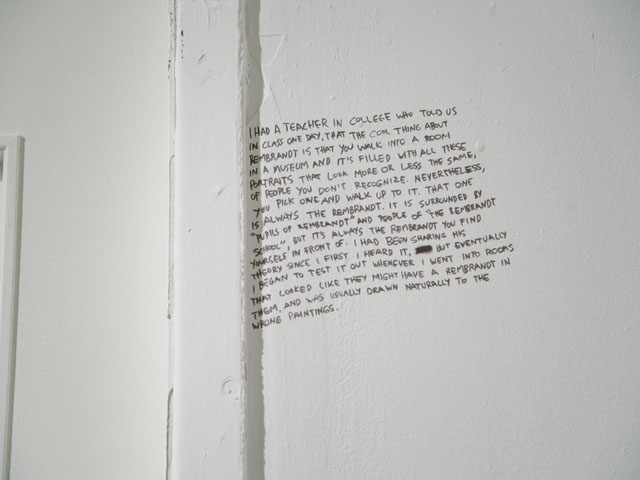 I HAD A TEACHER IN COLLEGE WHO TOLD US
IN CLASS ONE DAY, THAT THE COOL THING ABOUT
REMBRANDT IS THAT YOU WALK INTO A ROOM
IN A MUSEUM AND IT'S FILLED WITH ALL THESE
PORTRAITS THAT LOOK MORE OR LESS THE SAME,
OF PEOPLE YOU DON'T RECOGNIZE. NEVERTHELESS,
YOU PICK ONE AND WALK UP TO IT. THAT ONE
IS ALWAYS THE REMBRANDT. IT IS SURROUNDED BY
"PUPILS OF REMBRANDT" AND PEOPLE OF "THE REMBRANDT
SCHOOL", BUT IT'S ALWAYS THE REMBRANDT YOU FIND
YOURSELF IN FRONT OF. I HAD BEEN SHARING HIS
THEORY SINCE I FIRST I HEARD IT, BUT EVENTUALLY
I BEGAN TO TEST IT OUT WHENEVER I WENT INTO ROOMS
THAT LOOKED LIKE THEY MIGHT HAVE A REMBRANDT IN
THEM, AND WAS USUALLY DRAWN NATURALLY TO THE
WRONG PAINTINGS.